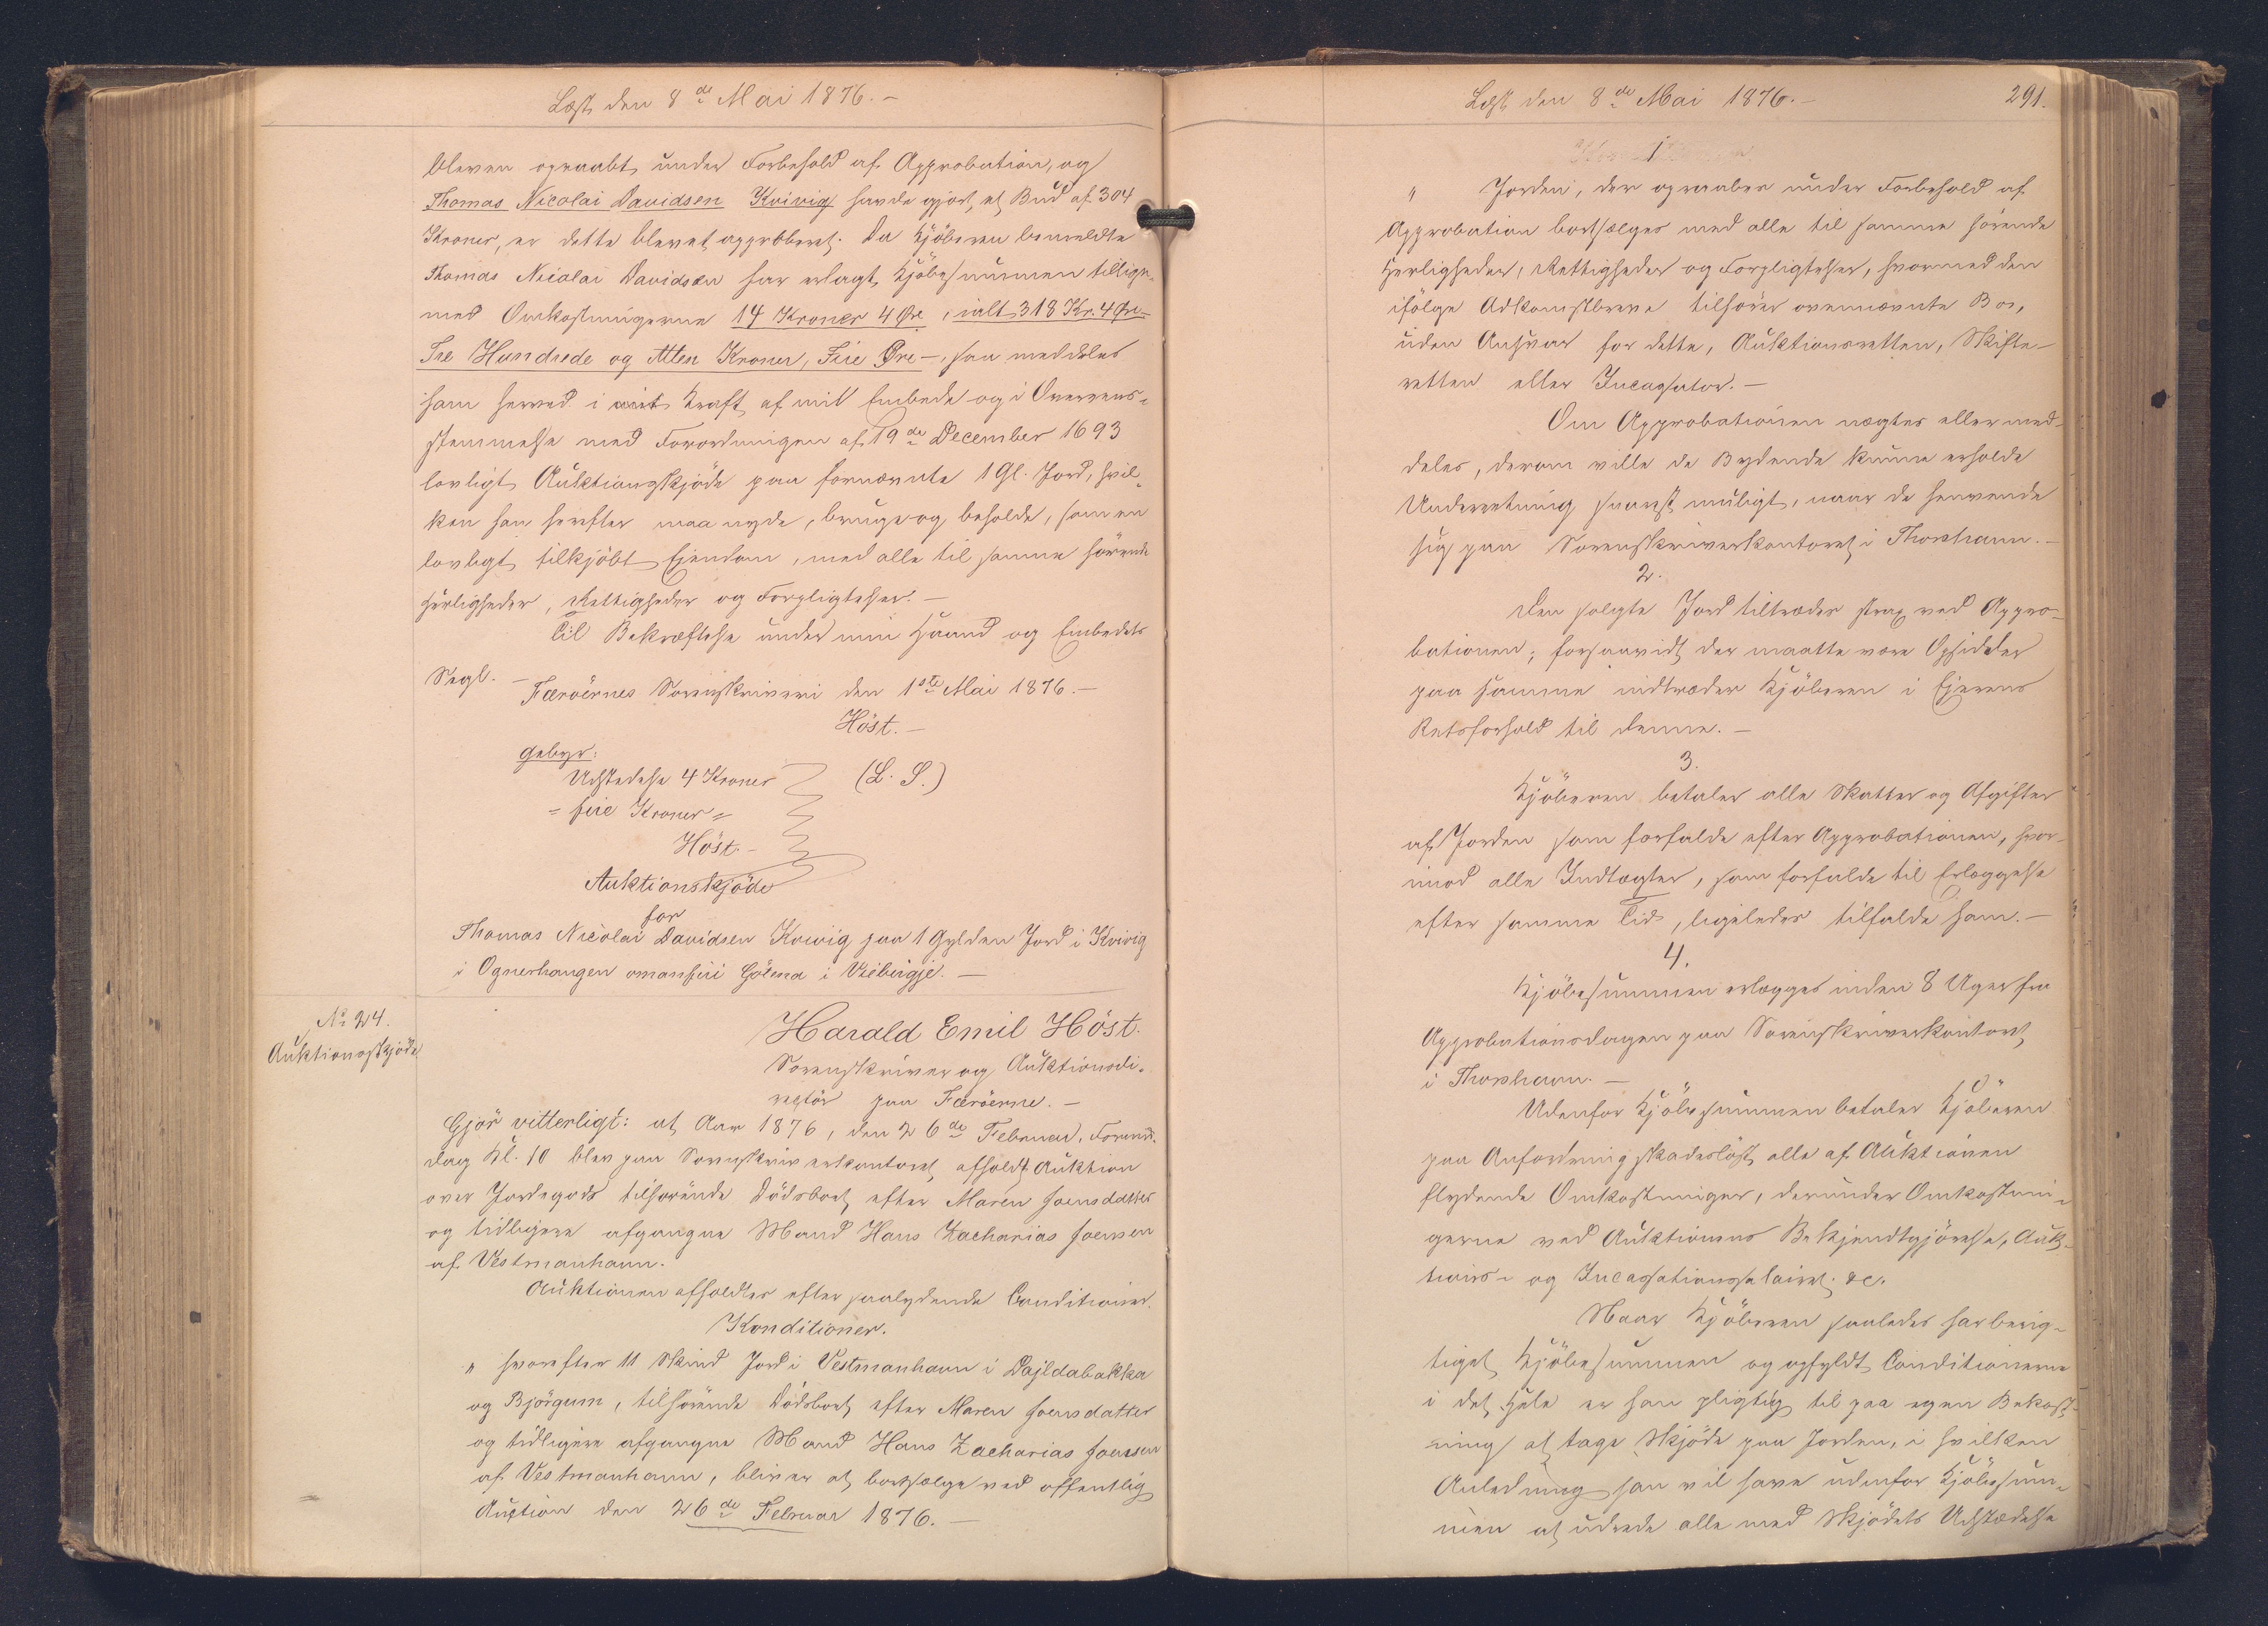 Læst den 8de Mai 1876.-
bleven opraabt under Forbehold af Approbation, og
Thomas Nicolai Davidsen Kvivig havde gjort et Bud af 304
Kroner, er dette blevet approberet. Da Kjöberen bemeldte
Thomas Nicolai Davidsen har erlagt Kjöbesummen tillige-
med Omkostningerne 14 Kroner 4 Öre, ialt 318 Kr. 4 Öre-
Tre Hundrede og Atten Kroner, Fire Öre -, saa meddeles
ham herved i Kraft af mit Embede og i Overens-
stemmelse med Forordningen af 19de December 1693
lovligt Auktionsskjöde paa fornævnte 1 Gl. Jord, hvil-
ken han herefter maa nyde, bruge og beholde, som en
lovligt tilkjöbt Ejendom, med alle til samme hörende
Herligheder, Rettigheder og Forpligtelser. -
Til Bekræftelse under min Haand og Embedets
Segl. -
Færöernes Sorenskriveri den 1ste Mai 1876. -
Höst. -
Gebyr:
Udstedelse 4 Kroner (L. S.)
= fire Kroner =
Höst. -
Auktionskjöde
for
Thomas Nicolai Davidsen Kvivig paa 1 Gylden Jord i Kvivig
i Ognerhaugen omanfiri Gölma i Vübügje. -
No 24.
Auktionsskjöde
Harald Emil Höst.
Sorenskriver og Auktionsdi-
rektör paa Færöerne. -
Gjör vitterligt: at Aar 1876, den 26de Februar, Formid-
dag Kl. 10 blev paa Sorenskriverkontoret afholdt Auktion
over Jordegods tilhörende Dödsboet efter Maren Joensdatter
og tidligere afgangne Mand Hans Zacharias Joensen
af Vestmanhavn.
Auktionen afholdtes efter saalydende Conditioner.
Konditioner.
" hvorefter 11 Skind Jord i Vestmanhavn i Dajldabakka
og Björgum, tilhörende Dödsboet efter Maren Joensdatter
og tidligere afgangne Mand Hans Zacharias Joensen
af Vestmanhavn, bliver at bortsælge ved offentlig
Auction den 26de Februar 1876. -
Læst den 8de Mai 1876.-
291.
1
" Jorden, der opraabes under Forbehold af
Approbation bortsælges med alle til samme hörende
Herligheder, Rettigheder og Forpligtelser, hvormed den
ifölge Adkomstbreve tilhörer ovennævnte Bo,
uden Ansvar for dette, Auktionsretten, Skifte-
retten eller Incassator. -
Om Approbationen nægtes eller med-
deles, derom ville de Bydende kunne erholde
Underretning snarest muligt, naar de henvende
sig paa Sorenskriverkontoret i Thorshavn. -
2.
Den solgte Jord tiltrædes strax ved Appro-
bationen; forsaavidt der maatte være Opsidder
paa samme indtræder Kjöberen i Ejerens
Retsforhold til denne. -
3.
Kjöberen betaler alle Skatter og Afgifter
af Jorden som forfalde efter Approbationen, hvor-
imod alle Indtægter, som forfalde til Erlæggelse
efter samme Tid, ligeledes tilfalde ham. -
4.
Kjöbesummen erlægges inden 8 Uger fra
Approbationsdagen paa Sorenskriverkontoret
i Thorshavn. -
Udenfor Kjöbesummen betaler Kjöberen
paa Anfordring skadeslöst alle af Auktionen
flydende Omkostninger, derunder Omkostnin-
gerne ved Auktionens Bekjendtgjörelse, Auk-
tions- og Incassationssalairet &c.
Naar Kjöberen saaledes har berig-
tiget Kjöbesummen og opfyldt Conditionerne
i det Hele er han pligtig til paa egen Bekost-
ning at tage Skjöde paa Jorden, i hvilken
Anledning han vil have udenfor Kjöbesum-
men at udrede alle med Skjödets Udstædelse